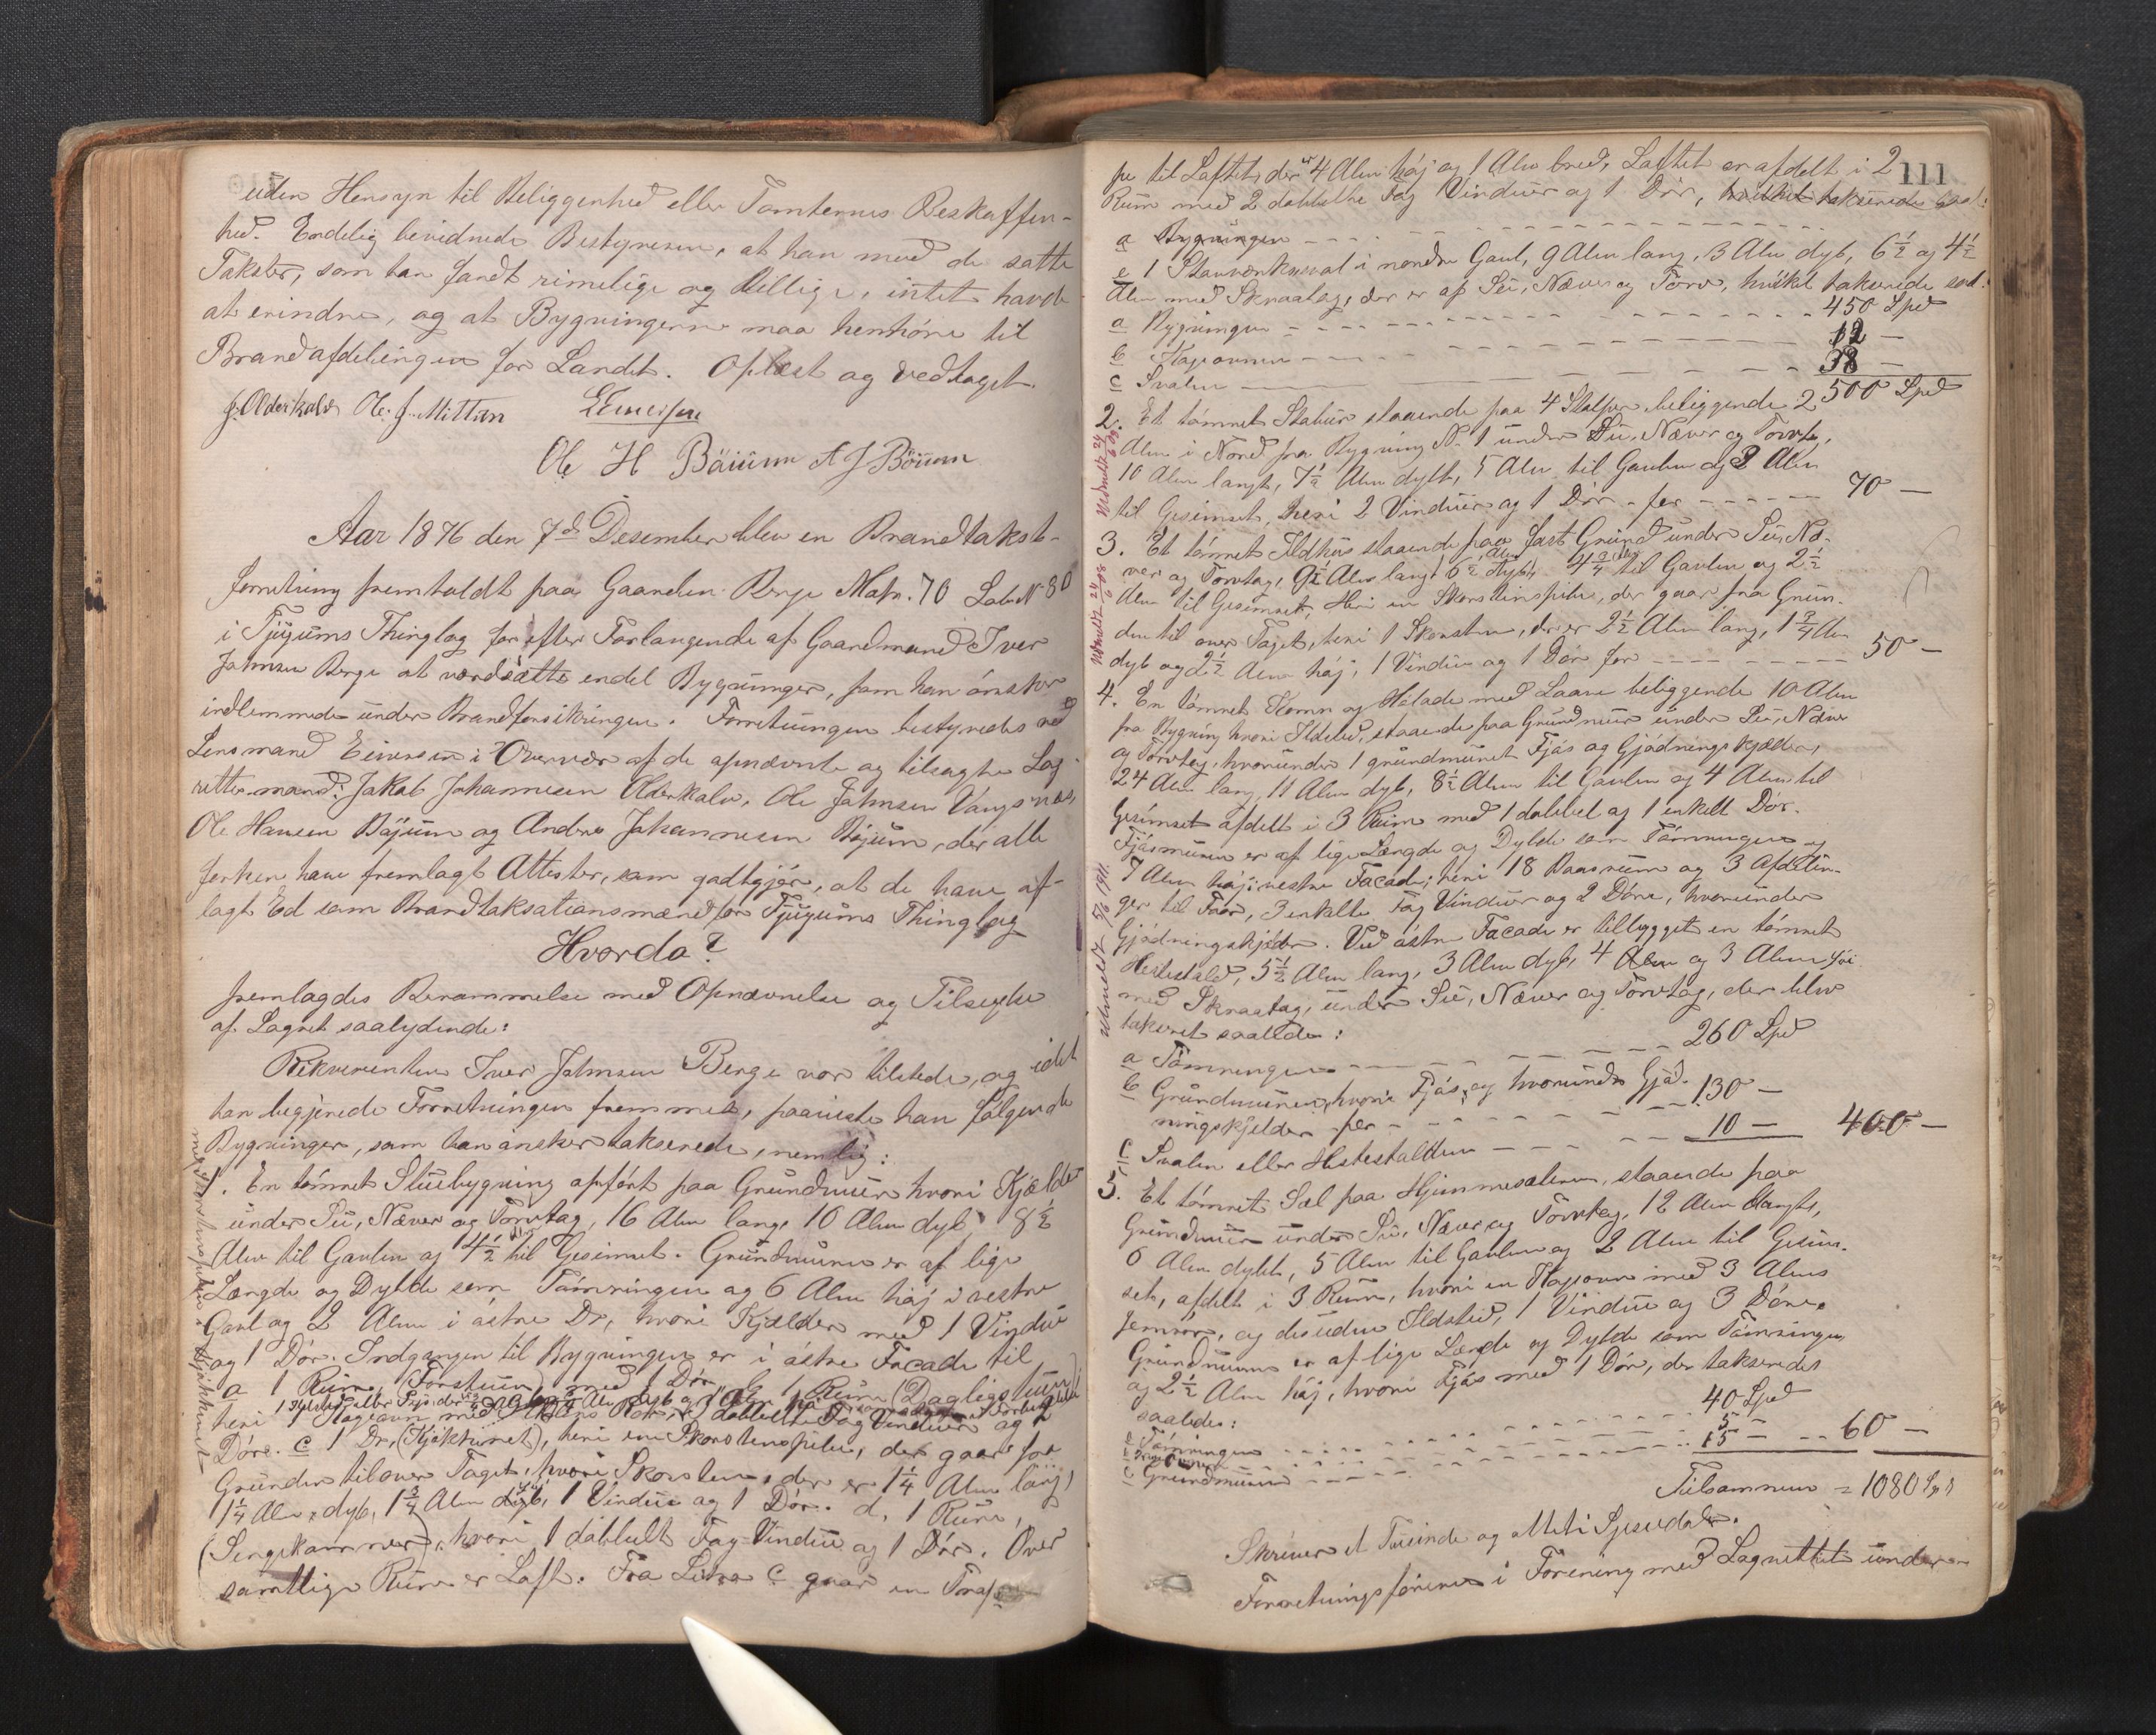 uden Hensyn til Beliggenhed eller Tomternes Beskaffen-
hed. Endelig bevidnede Bestyreren, at han mod de satte
Takster, som han fandt rimelige og billige, intet havde
at erindre, og at Bygningerne maa henhøre til
Brandafdelingen for Landet. Oplæst og vedtaget.
J. Olderkalv Ole J. Mittun
Ole H Böiüm A J Böium
Aar 1876 den 7de Desember blev en Brandtakst-
forretning fremholdt paa Gaarden Berge Matr. 70 Løb. N 80
i Tjugums Thinglag for efter Forlangende af Gaardmand Iver
Johnsen Berge at værdsætte endel Bygninger, som han ønsker
indlemmede under Brandforsikringen. Forretningen bestyredes ved
Lensmand Eineren i Overvær af de opnævnte og tilsagte Lag-
rettesmænd: Jakob Johannesen Olderkalv, Ole Johnsen Vangsnes,
Ole Hansen Böjum og Andrs Johannesen Böjum, der alle
forhen have fremlagt Attester, som godtgjør, at de have af-
lagt Ed som Brandtaksationsmænd for Tjugums Thinglag
Hvorda?
fremlagdes Berammelse med Opnævnelse og Tilsigelse
af Lagret saalydende:
Rekvirenten Iver Johnsen Berge var tilstede, og idet
han begjerede Forretningen fremmet, paaviste han følgende
Bygninger, som han ønsker takserede, nemlig:
1. En tømret Stuebygning opført paa Grundmur hvori Kjælder
under Su, Næver og Torvtag, 16 Alen lang, 10 Alen dyb, 8½
Alen til Gavlen og 4½ til Gesimset. Grundmuren er af lige
Længde og Dybde som Tømringen og 6 Alen høj i vestre
Gavl og 2 Alen i østre Dr, hvori Kjælder med 1 Vindue
og 1 Dør. Indgangen til Bygningen er i østre Facade til
a 1 Rum, (Forstuen) med 1 Dør, b 1 Rum (Dagligstuen)
heri 1 Hageovn med Alens Rør, dobbelte Fag Vinduer og 2
Døre. c 1 Dr, (Kjøkkenet), heri en Skorstenspibe, der gaar fra
Grunden til over Taget, hvori Skorsten, der er 1¼ Alen lang,
1¼ Alen dyb, 1¾ Alen høj, 1 Vindue og 1 Dør. d, 1 Rum,
(Sengekammer), hvori 1 dobbelt Fag Vindue og 1 Dør. Over
samtlige Rum er Loft. Fra Litra C gaar en Trap-
111
pe til Loftet, der er 4 Alen høj og 1 Alen bred, Loftet er afdelt i 2
Rum med 2 dobbelte Fag Vinduer og 1 Dør, hvilket takseredes saal:
a Bygningen
e 1 Stavværkssval i nordre Gavl, 9 Alen lang, 3 Alen dyb, 6½ og 4½
Alen med Skraatag, der er af Su, Næver og Torv, hvilket takserede saal:
a Bygningen 450 Spd
b Hageovnen 12 —
c Svalen 38 —
500 Spd
2. Et tømret Stabur staaende paa 4 Stolper beliggende 2
Alen i Nord fra Bygning N. 1 under Su, Næver og Torvtag,
10 Alen langt, 7½ Alen dybt, 5 Alen til Gavlen og 3 Alen
til Gesimset, heri 2 Vinduer og 1 Dør - for 70 —
3. Et tømret Ildhus staaende paa fast Grund under Su, Næ-
ver og Torvtag, 9½ Alen langt 6½ Alen dybt, 4¾ Alen til Gavlen og 2½
Alen til Gesimset, Heri en Skorstenspibe, der gaar fra Grun-
den til over Taget, heri 1 Skorsten, der er 2½ Alen lang, 1¾ Alen
dyb og 2½ Alen høj, 1 Vindue og 1 Dør for 50 —
4. En tømret Korn og Hølade med Laave beliggende 10 Alen
fra Bygning hvori Ildsted, staaende paa Grundmur under Su, Næver
og Torvtag, hvorunder 1 grundmuret Fjøs og Gjødningskjælder,
24 Alen lang, 11 Alen dyb, 8½ Alen til Gavlen og 4 Alen til
Gesimset afdelt i 3 Rum med 1 dobbel og 1 enkelt Dør.
Fjøsmuren er af lige Længde og Dybde som Tømringen og
7 Alen høj i vestre Facade, heri 18 Baasrum og 3 Afdelin-
ger til Faar, 3 enkelte Fag Vinduer og 2 Døre, hvorunder
Gjødningskjelder. Ved østre Facade er tilbygget en tømret
Hestestald, 5½ Alen lang, 3 Alen dyb, 4 Alen og 3 Alen høi
med Skraatag, under Su, Næver og Torvtag, der blev
takseret saaledes:
a Tømringen 260 Spd
b Grundmuren, hvori Fjøs, og hvorunder Gjød-
ningskjelder for 130 —
c Svalen eller Hestestalden 10 — 400 —
5. Et tømret Sæl paa Hjemmesæteren, staaende paa
Grundmur under Su, Næver og Torvtag, 12 Alen langt,
6 Alen dybt, 5 Alen til Gavlen og 2 Alen til Gesim-
set, afdelt i 3 Rum, hvori en Hageovn med 3 Alens
Jernrør, og desuden Ildsted, 1 Vindue og 3 Døre.
Grundmuren er af lige Længde og Dybde som Tømringen
og 2½ Alen høj, hvori Fjøs med 1 Dør, der takseredes
saaledes:
a Tømringen 40 Spd
b 5 —
c Grundmuren 15 — 60 —
Tilsammen = 1080 Spd
Skriver
Forretningsføreren i Forening med Lagrettet under-
Nedmeldt 24/6 03
Nedmeldt 24/6 03
Udmeldt 5/6 1911.